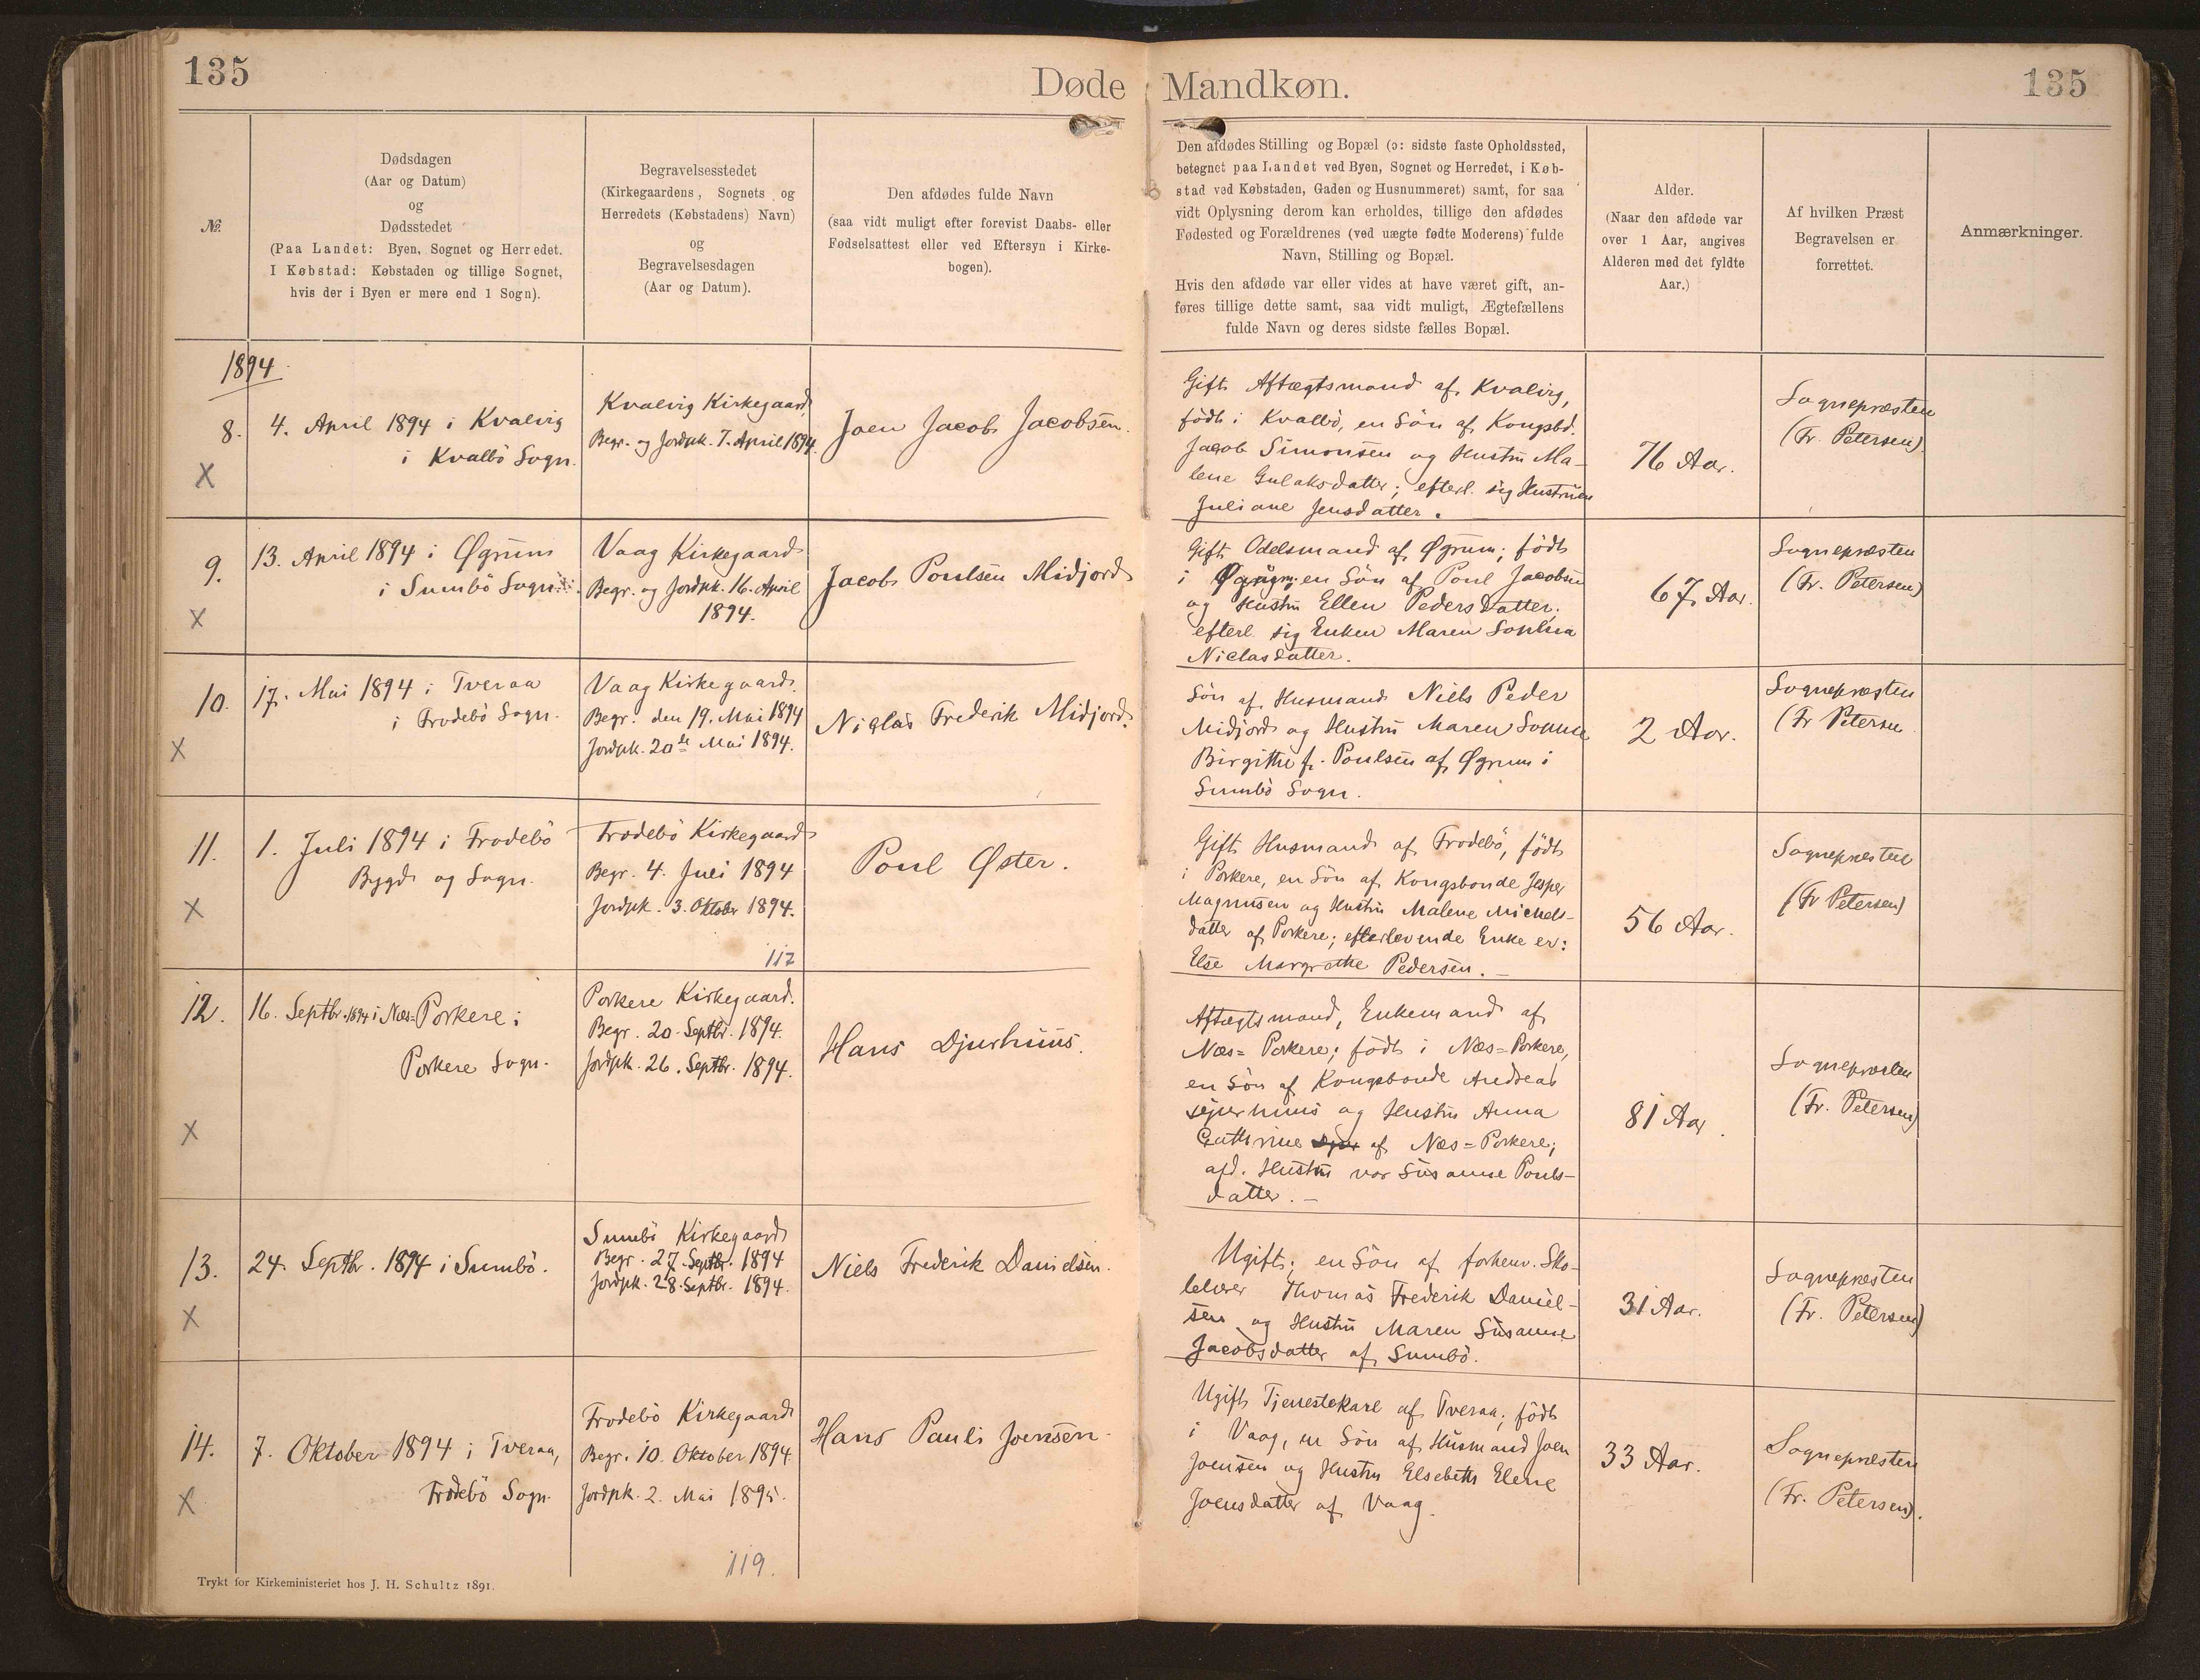 135
Døde Mandkøn.
135
№
Dødsdagen
(Aar og Datum)
og
Dødsstedet
(Paa Landet: Byen, Sognet og Herredet.
I Købstad: Købstaden og tillige Sognet,
hvis der i Byen er mere end 1 Sogn).
Begravelsesstedet
(Kirkegaardens, Sognets og
Herredets (Købstadens) Navn)
og
Begravelsesdagen
(Aar og Datum).
Den afdødes fulde Navn
(saa vidt muligt efter forevist Daabs- eller
Fødselsattest eller ved Eftersyn i Kirke-
bogen).
Den afdødes Stilling og Bopæl (ɔ: sidste faste Opholdssted,
betegnet paa Landet ved Byen, Sognet og Herredet, i Køb-
stad ved Købstaden, Gaden og Husnummeret) samt, for saa
vidt Oplysning derom kan erholdes, tillige den afdødes
Fødested og Forældrenes (ved uægte fødte Moderens) fulde
Navn, Stilling og Bopæl.
Hvis den afdøde var eller vides at have været gift, an-
føres tillige dette samt, saa vidt muligt, Ægtefællens
fulde Navn og deres sidste fælles Bopæl.
Alder.
(Naar den afdøde var
over 1 Aar, angives
Alderen med det fyldte
Aar.)
Af hvilken Præst
Begravelsen er
forrettet.
Anmærkninger.
1894
8.
X
4. April 1894 i Kvalvig
i Kvalbö Sogn.
Kvalvig Kirkegaard
Begr. og Jordpk. 7. April 1894.
Joen Jacob Jacobsen.
Gift Aftægtsmand af Kvalvig,
födt i Kvalbö, en Sön af Kongsbd.
Jacob Simonsen og Hustru Ma-
lene Gulaksdatter; efterl. sig Hustruen
Juliane Jensdatter.
76 Aar.
Sognepræsten
(Fr. Petersen).
9.
X
13. April 1894 i Øgrum
i Sumbö Sogn
Vaag Kirkegaard
Begr. og Jordpk. 16. April
1894.
Jacob Poulsen Midjord
Gift Odelsmand af Øgrum; födt
i Øgrum; en Sön af Poul Jacobsen
og Hustru Ellen Pedersdatter.
efterl. sig Enken Maren Sophia
Niclasdatter.
67 Aar.
Sognepræsten
(Fr. Petersen)
10.
X
17. Mai 1894 i Tveraa
i Frodebö Sogn.
Vaag Kirkegaard.
Begr. den 19. Mai 1894
Jordpk. 20de Mai 1894.
Niclas Frederik Midjord.
Sön af Husmand Niels Peder
Midjord og Hustru Maren Sanne
Birgithe f. Poulsen af Øgrum i
Sumbö Sogn.
2 Aar.
Sognepræsten
(Fr Petersen
11.
X
1. Juli 1894 i Frodebö
Bygd og Sogn.
Frodebö Kirkegaard
Begr. 4. Juli 1894
Jordpk. 3. Oktober 1894.
117
Poul Øster.
Gift Husmand af Frodebö, födt
i Porkere, en Sön af Kongsbonde Jesper
Magnussen og Hustru Malene Michels-
datter af Porkere; efterlevende Enke er:
Else Margrethe Pedersen. —
56 Aar.
Sognepræsten
(Fr Petersen)
12.
X
16. Septbr. 1894 i Næs=Porkere i
Porkere Sogn.
Porkere Kirkegaard.
Begr. 20. Septbr. 1894.
Jordpk. 26. Septbr. 1894.
Hans Djurhuus.
Aftægtsmand, Enkemand af
Næs=Porkere; födt i Næs=Porkere,
en Sön af Kongsbonde Andreas
Djurhuus og Hustru Anna
Cathrine af Næs=Porkere;
afd. Hustru var Susanne Pouls-
datter. —
81 Aar.
Sognepræsten
(Fr. Petersen)
13.
X
24. Septbr. 1894 i Sumbö.
Sumbö Kirkegaard
Begr. 27. Septbr. 1894
Jordpk. 28. Septbr. 1894.
Niels Frederik Danielsen.
Ugift; en Sön af forhenv. Sko-
lelærer Thomas Frederik Daniel-
sen og Hustru Maren Susanne
Jacobsdatter af Sumbö.
31 Aar.
Sognepræsten
(Fr. Petersen)
14.
X
7. Oktober 1894 i Tveraa,
Frodebö Sogn.
Frodebö Kirkegaard
Begr. 10. Oktober 1894.
Jordpk. 2. Mai 1895.
119.
Hans Pauli Joensen.
Ugift Tjenestekarl af Tveraa; födt
i Vaag, en Sön af Husmand Joen
Joensen og Hustru Elsebeth Elene
Joensdatter af Vaag.
33 Aar.
Sognepræsten
(Fr. Petersen).
Trykt for Kirkeministeriet hos J. H. Schultz 1891.